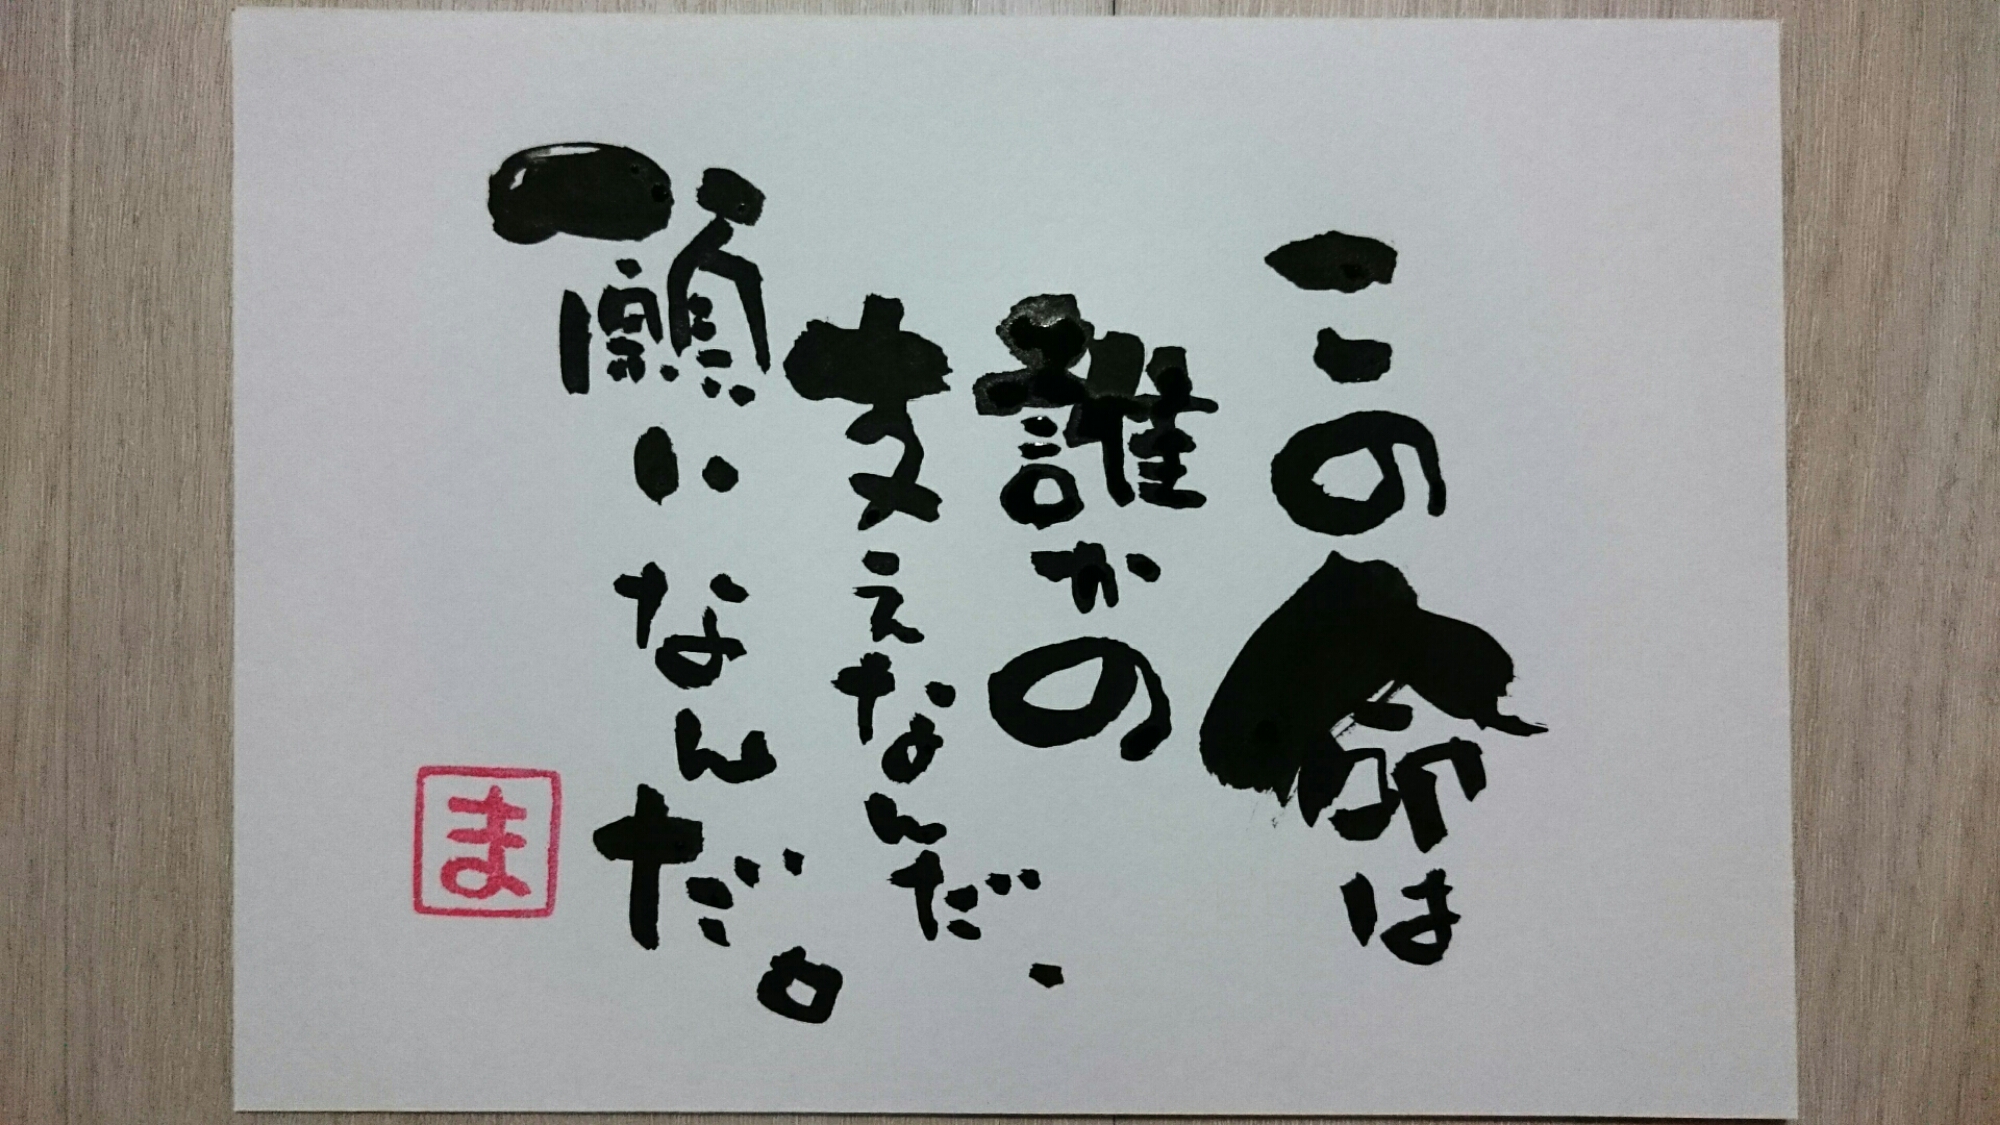 この命は
誰かの
支えなんだ、
願いなんだ。
ま